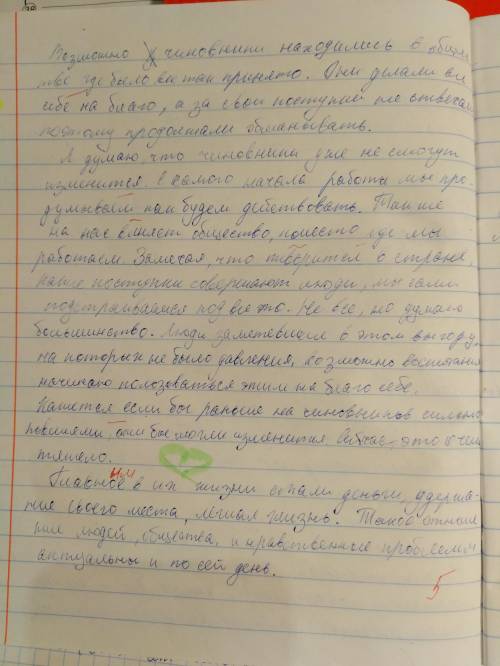 Возможно чиновники находились в общес
тве где было вы так принято. Они делали вс
себе на благо, а за свои поступки не отвечал
поэтому продолжали обманывать.
Я думаю, что чиновники уже не смогут
изменится. С самого начала работы мы про-
думываем как будем действовать. Также
на нас влияет общество, место где мы
работаем. Замечая, что творится в стране,
какие поступки совершают люди, мы сами
подстраиваемся под все это. Не все, но думаю
большинство. Люди заметевшие в этом выгоду,
на которых не было давления, возможно воспитания
начинаю пользоваться этим на благо себе.
Кажется если бы раньше на чиновников сильно
повлияли, они бы могли изменится. Сейчас это
тяжело.
Главное в их жизни стали деньги, удержа-
ние своего места, лёгкая жизнь. Такое отноше
ние людей, общества, и нравственные проблемы
актуальны и по сей день.
5